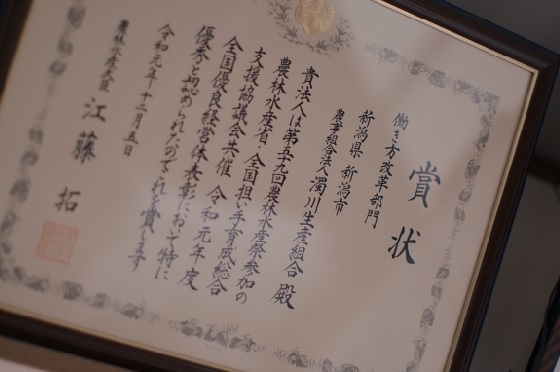 賞状
働き方改革部門
新潟県 新潟市
農事組合法人 濁川生産組合 殿
貴法人は第五十九回農林水産祭参加の
農林水産省・全国担い手育成総合
支援協議会共催 令和元年度
全国優良経営体表彰において特に
優秀と認められたのでこれを賞します
令和元年十二月五日
農林水産大臣 江藤 拓